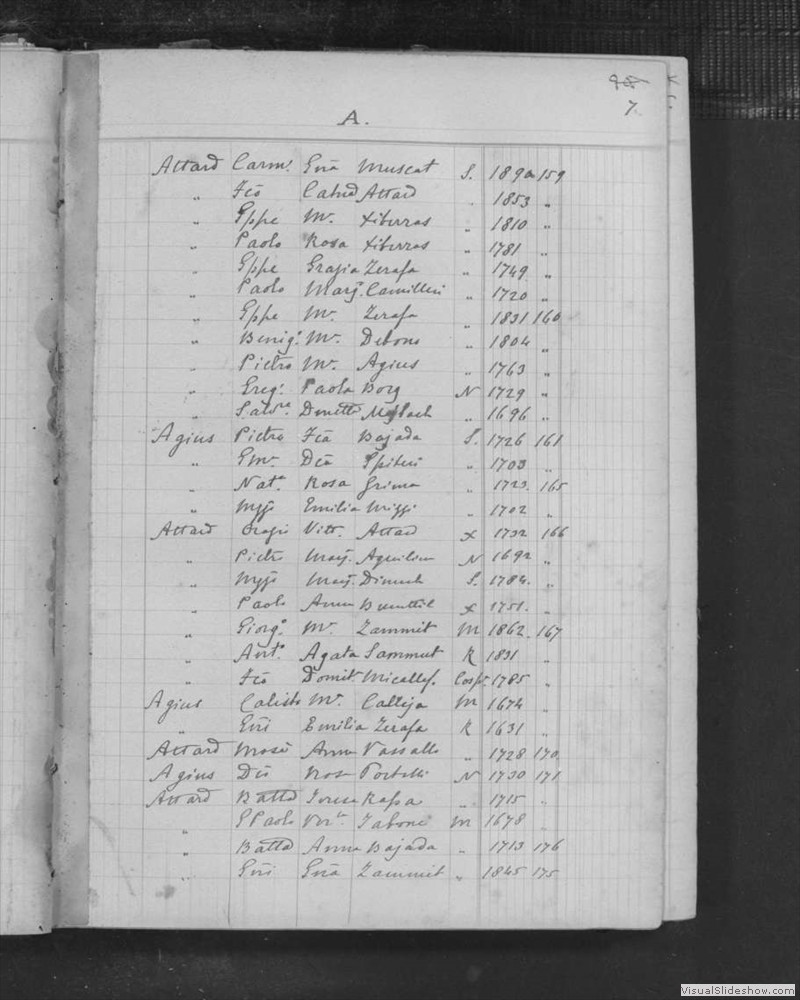 7.
A.
Attard Carmo. Gña Muscat S. 1890 159
" Fcõ Catnd Attard " 1853 "
" Gppe Ma. Xiberras " 1810 "
" Paolo Rosa Xiberras " 1781 "
" Gppe Grazia Zerafa " 1749 "
" Paolo Marg. Camilleri " 1720 "
" Gppe Ma. Zerafa " 1831 160
" Benigo. Ma. Debono " 1804 "
" Pietro Ma. Agius " 1763 "
" Grego. Paola Borg N 1729 "
" Salvre " 1696 "
Agius Pietro Fcã Bajada S. 1726 161
" Gmo. Dcã Spiteri " 1703 "
" Nato. Rosa Grima " 1723. 165
" Emilia " 1702 "
Attard Vitt. Attard x 1732 166
" Pietro Marg. Aquilina N 1692 "
" Marg. Dimech S. 1784. "
" Paolo Anna x 1751. "
" Giorgo. Ma. Zammit M 1862. 167
" Anto. Agata Sammut K 1831 "
" Fcõ Domit. Micallef. Cosp. 1785 "
Agius Calisto Ma. Calleja M 1674 "
" Gñi Emilia Zerafa K 1631 "
Attard Mosè Anna Vassallo " 1728 170
Agius Dcõ Rosa Portelli N 1730 171
Attard Batta Teresa " 1715 "
" GPaolo Tabone M 1678 "
" Batta Anna Bajada " 1713 176
" Gñi Gña Zammit " 1845 175
VisualSlideshow.com